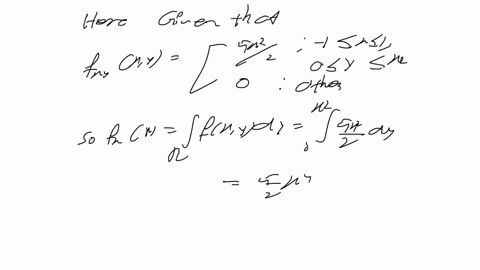 Here Given that
f_{xy}(x,y) = [ 5x²/2 ; -1 ≤ x ≤ 1, 0 ≤ y ≤ x²
0 ; other
so f_x(x) = ∫_R f(x,y) dy = ∫_0^{x²} 5x²/2 dy
= 5/2 x⁴